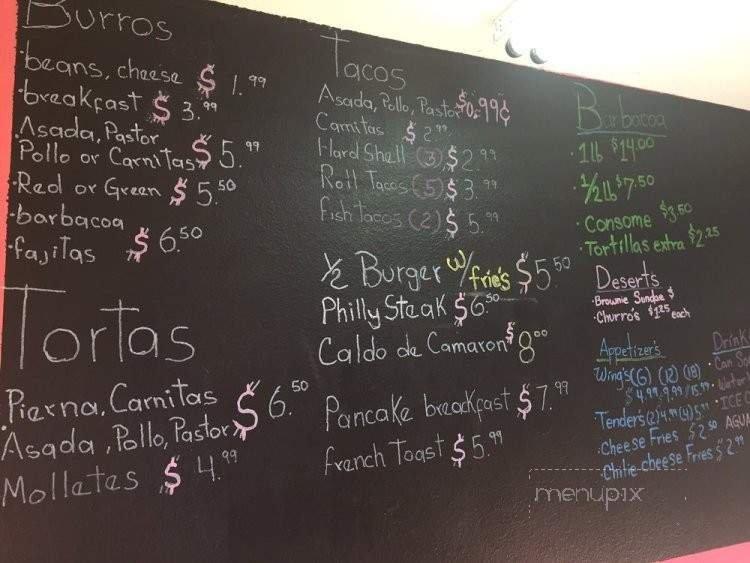 Burros
·beans, cheese $ 1.99
·breakfast $ 3.99
·Asada, Pastor
Pollo or Carnitas $ 5.99
·Red or Green $ 5.50
·barbacoa
·fajitas $ 6.50
Tortas
·Pierna, Carnitas
Asada, Pollo, Pastor $ 6.50
Molletes $ 4.99
Tacos
Asada, Pollo, Pastor $0.99¢
Carnitas $ 2.99
Hard Shell (3) $ 2.99
Roll Tacos (5) $ 3.99
Fish tacos (2) $ 5.99
1/2 Burger w/ frie's $5.50
Philly Steak $6.50
Caldo de Camaron $8.00
Pancake breackfast $7.99
french Toast $5.99
Barbacoa
·1lb $14.00
·1/2 lb $7.50
·Consome $3.50
·Tortillas extra $2.25
Deserts
·Brownie Sundae $
·Churro's $1.25 each
Appetizer's
Wing's (6) (12) (18)
$4.99, 9.99 / 15.99
Tender's (2) 4.99 (4) 5.99
·Cheese Fries $2.50
·Chilie cheese Fries $2.99
Drink
·Can
ICE
AGUA
menupix